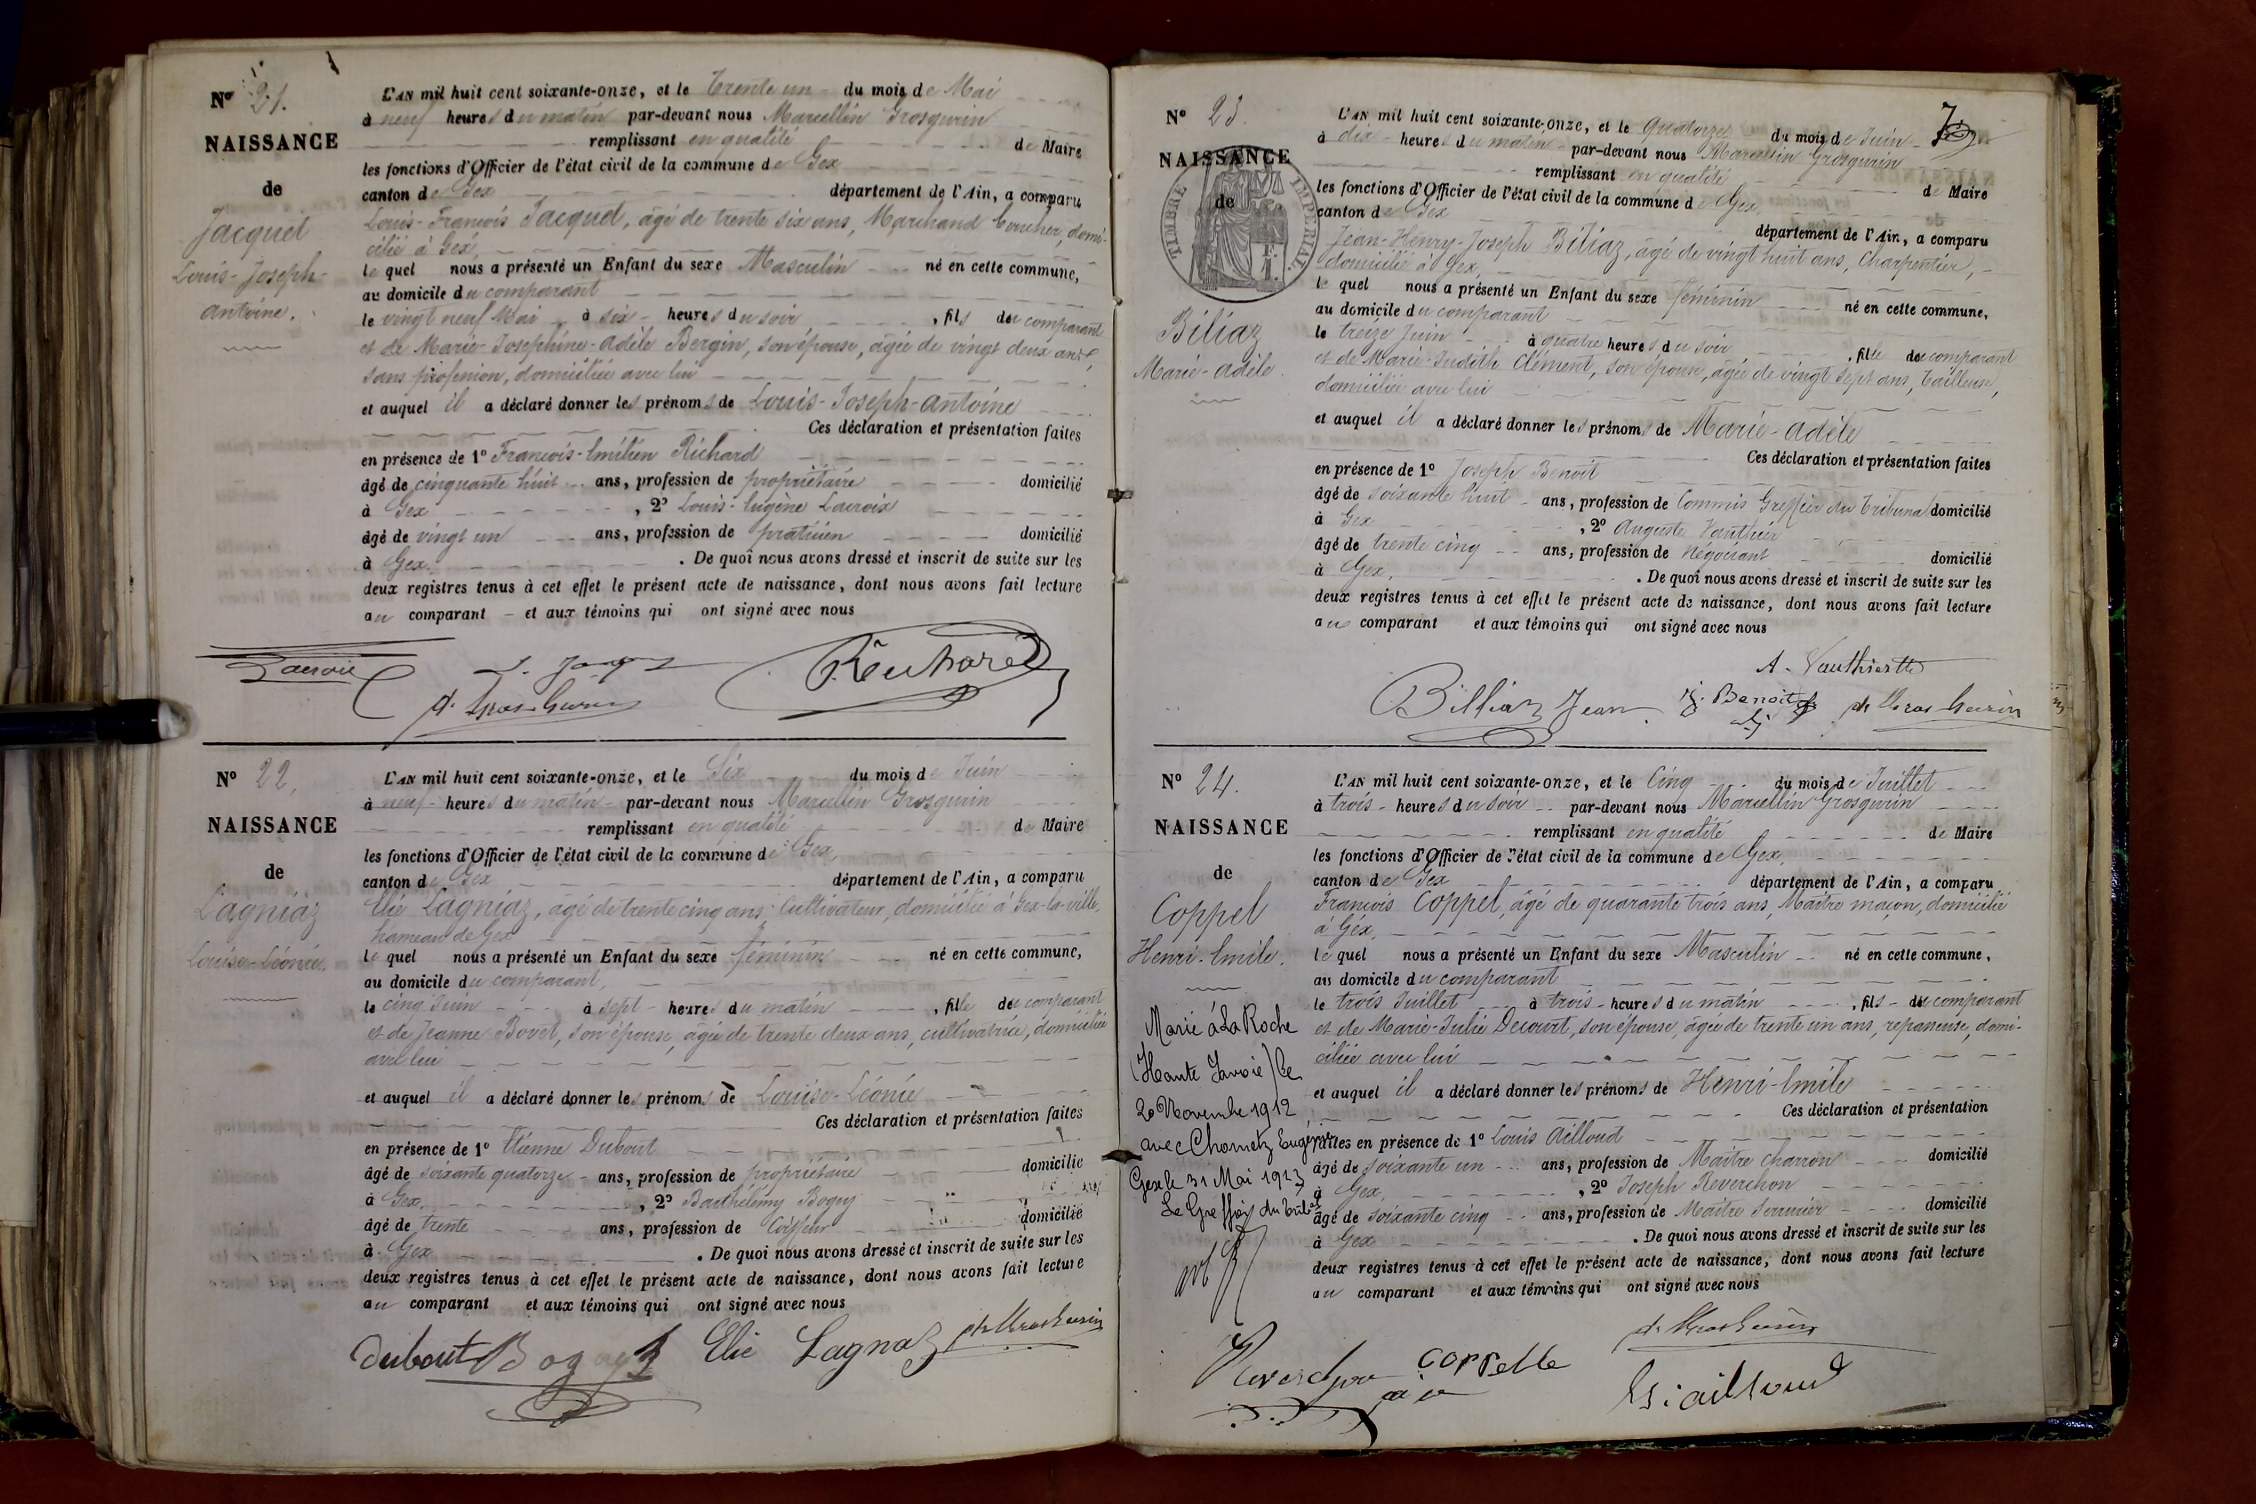 N° 21.
NAISSANCE
de
Jacquet
Louis-Joseph-
Antoine.
L'AN mil huit cent soixante-onze, et le trente un du mois de Mai
à neuf heures du matin par-devant nous Marcellin Grosgurin
remplissant en qualité de Maire
les fonctions d'Officier de l'état civil de la commune de Gex
canton de Gex département de l'Ain, a comparu
Louis-François Jacquet, âgé de trente six ans, Marchand Boucher, domi-
cilié à Gex,
le quel nous a présenté un Enfant du sexe Masculin né en cette commune,
au domicile du comparant
le vingt neuf Mai à six heures du soir, fils du comparant
et de Marie-Joséphine-Adèle Bergin, son épouse, âgée de vingt deux ans,
sans profession, domiciliée avec lui
et auquel il a déclaré donner les prénoms de Louis-Joseph-Antoine
Ces déclaration et présentation faites
en présence de 1° François-Emilien Richard
âgé de cinquante huit ans, profession de propriétaire domicilié
à Gex, 2° Louis-Eugène Lacroix
âgé de vingt un ans, profession de praticien domicilié
à Gex. De quoi nous avons dressé et inscrit de suite sur les
deux registres tenus à cet effet le présent acte de naissance, dont nous avons fait lecture
au comparant et aux témoins qui ont signé avec nous
Lacroix
N° 22.
NAISSANCE
de
Lagniaz
Louise-Léonie.
L'AN mil huit cent soixante-onze, et le Six du mois de Juin
à neuf heures du matin par-devant nous Marcellin Grosgurin
remplissant en qualité de Maire
les fonctions d'Officier de l'état civil de la commune de Gex
canton de Gex département de l'Ain, a comparu
Elie Lagniaz, âgé de trente cinq ans, Cultivateur, domicilié à Gex-la-ville,
hameau de Gex
le quel nous a présenté un Enfant du sexe féminin né en cette commune,
au domicile du comparant,
le cinq Juin à sept heures du matin, fille du comparant
et de Jeanne Bovet, son épouse, âgée de trente deux ans, cultivatrice, domiciliée
avec lui
et auquel il a déclaré donner les prénoms de Louise-Léonie
Ces déclaration et présentation faites
en présence de 1° Etienne Dubout
âgé de soixante quatorze ans, profession de propriétaire domicilié
à Gex, 2° Barthélemy Bogey
âgé de trente ans, profession de Coiffeur domicilié
à Gex. De quoi nous avons dressé et inscrit de suite sur les
deux registres tenus à cet effet le présent acte de naissance, dont nous avons fait lecture
au comparant et aux témoins qui ont signé avec nous
Dubout Bogey Elie Lagnaz
N° 23.
NAISSANCE
de
TIMBRE IMPERIAL
Biliaz
Marie-Adèle.
L'AN mil huit cent soixante-onze, et le Quatorze du mois de Juin
à dix heures du matin par-devant nous Marcellin Grosgurin
remplissant en qualité de Maire
les fonctions d'Officier de l'état civil de la commune de Gex,
canton de Gex département de l'Ain, a comparu
Jean-Henry-Joseph Biliaz, âgé de vingt huit ans, Charpentier,
domicilié à Gex,
le quel nous a présenté un Enfant du sexe féminin né en cette commune,
au domicile du comparant
le treize Juin à quatre heures du soir, fille du comparant
et de Marie-Judith Clément, son épouse, âgée de vingt sept ans, tailleuse,
domiciliée avec lui
et auquel il a déclaré donner les prénoms de Marie-Adèle
Ces déclaration et présentation faites
en présence de 1° Joseph Benoit
âgé de soixante huit ans, profession de Commis Greffier du Tribunal domicilié
à Gex, 2° Auguste Vauthier
âgé de trente cinq ans, profession de négociant domicilié
à Gex. De quoi nous avons dressé et inscrit de suite sur les
deux registres tenus à cet effet le présent acte de naissance, dont nous avons fait lecture
au comparant et aux témoins qui ont signé avec nous
A. Vauthier
Billiaz Jean J. Benoit
N° 24.
NAISSANCE
de
Coppel
Henri-Emile.
Marié à La Roche
(Haute Savoie) le
20 Novembre 1912
avec Chametz Eugénie
Gex le 31 Mai 1913
Le Greffier du trib
L'AN mil huit cent soixante-onze, et le Cinq du mois de Juillet
à trois heures du soir par-devant nous Marcellin Grosgurin
remplissant en qualité de Maire
les fonctions d'Officier de l'état civil de la commune de Gex,
canton de Gex département de l'Ain, a comparu
François Coppel, âgé de quarante trois ans, Maître maçon, domicilié
à Gex,
le quel nous a présenté un Enfant du sexe Masculin né en cette commune,
au domicile du comparant
le trois Juillet à trois heures du matin, fils du comparant
et de Marie-Julie Decourt, son épouse, âgée de trente un ans, repasseuse, domi-
ciliée avec lui
et auquel il a déclaré donner les prénoms de Henri-Emile
Ces déclaration et présentation
faites en présence de 1° Louis Ailloud
âgé de soixante un ans, profession de Maître charron domicilié
à Gex, 2° Joseph Reverchon
âgé de soixante cinq ans, profession de Maître serrurier domicilié
à Gex. De quoi nous avons dressé et inscrit de suite sur les
deux registres tenus à cet effet le présent acte de naissance, dont nous avons fait lecture
au comparant et aux témoins qui ont signé avec nous
Reverchon coppelle
Ls: ailloud